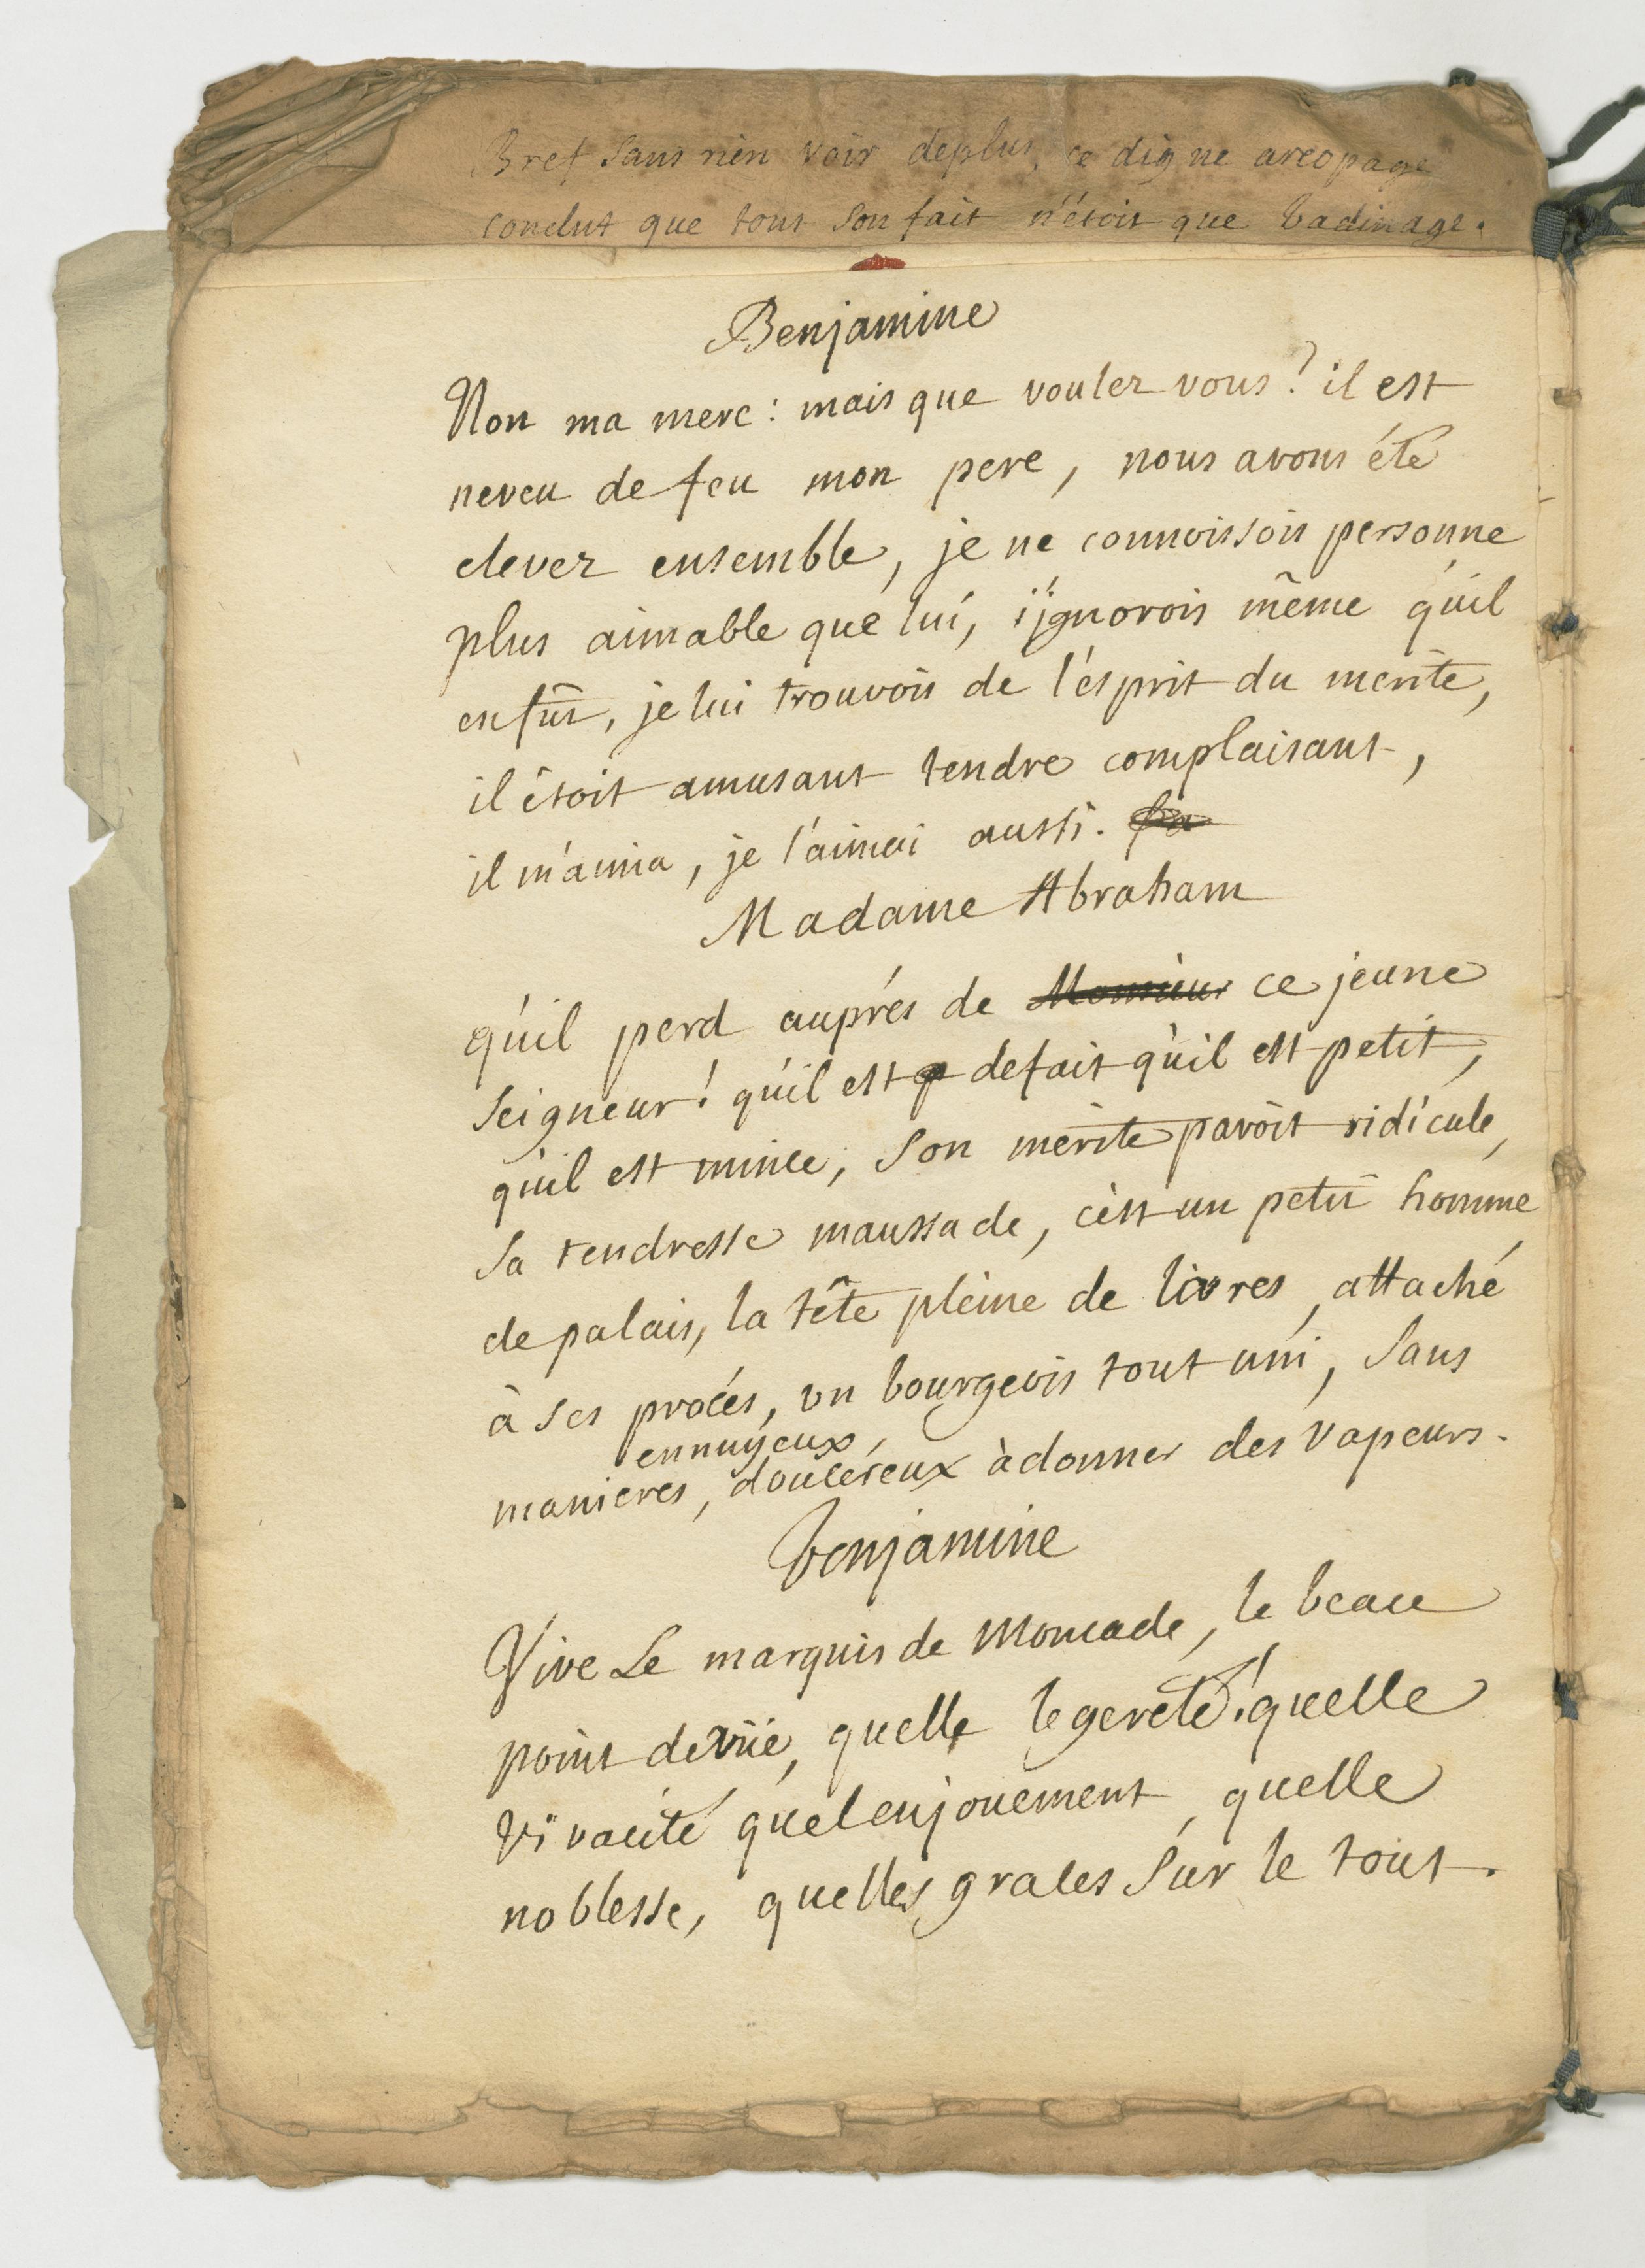 Bref sans rien voir deplus, ce digne areopage
conclut que tout son fait n'étoit que badinage.
Benjamine
Non ma mere : mais que voulez vous ? il est
neveu de feu mon pere, nous avons été
elevez ensemble, je ne connoissois personne
plus aimable que lui, j'ignorois même qu'il
en fût, je lui trouvois de l'ésprit du merite,
il étoit amusant tendre complaisant,
il m'aima, je l'aimai aussi.
Madame Abraham
qu'il perd auprés de Monsieur ce jeune
seigneur ! qu'il est defait qu'il est petit,
qu'il est mince, son mérite paroit ridicule,
sa tendresse maussade, c'est un petit homme
de palais, la tête pleine de livres, attaché
à ses procés, un bourgeois tout uni, sans
ennuyeux,
manieres, doucereux à donner des vapeurs.
benjamine
Vive Le marquis de Moncade, le beau
point de vüe, quelle legereté ! quelle
vivacité quel enjouement, quelle
noblesse, quelles graces sur le tout.